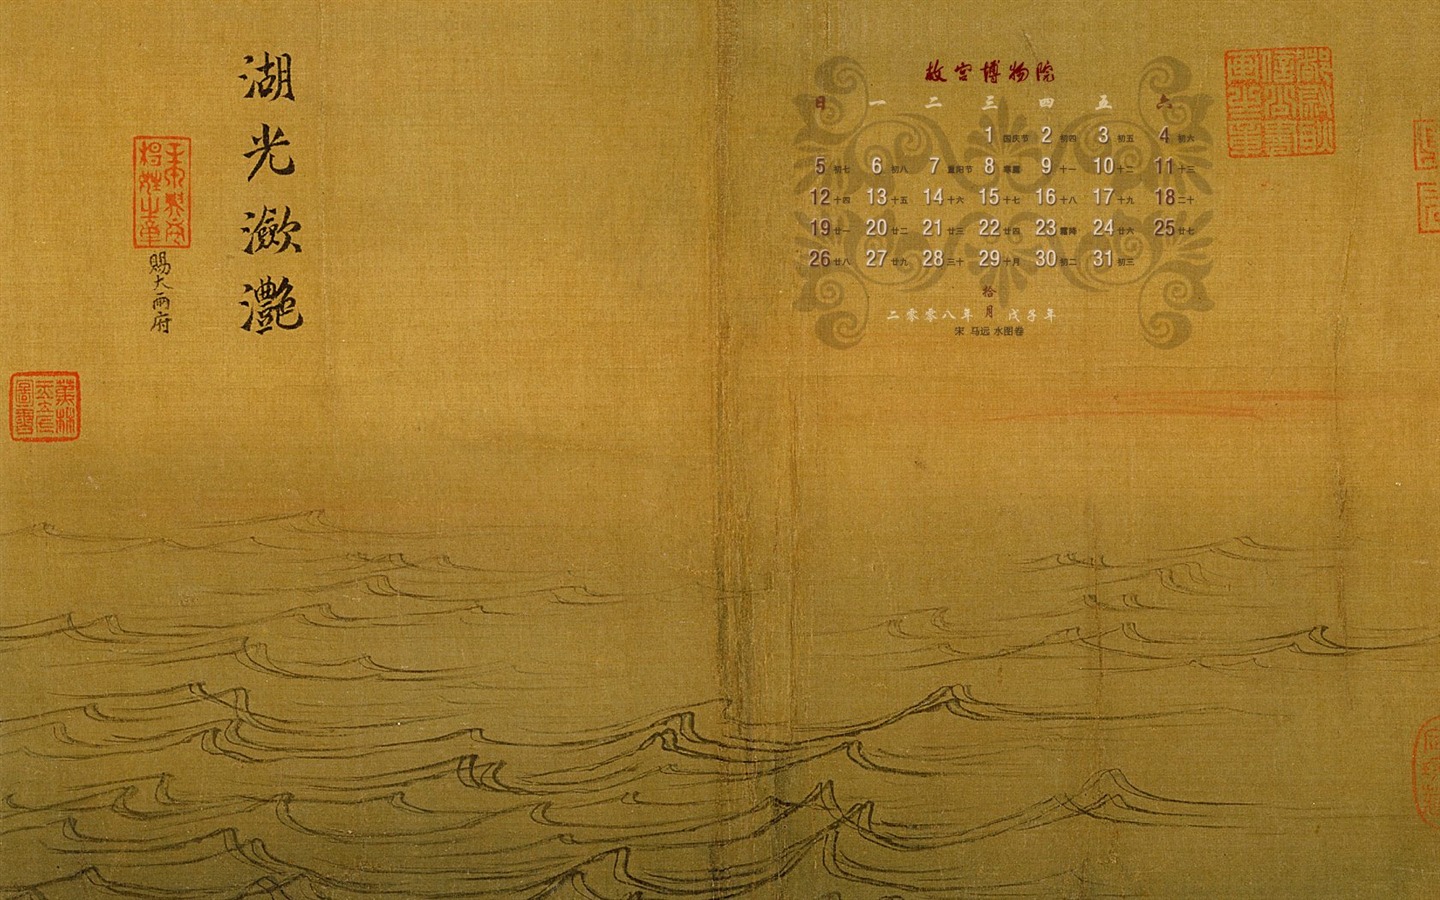 湖光瀲灔
賜大兩府
故宫博物院
日 一 二 三 四 五 六
1 国庆节 2 初四 3 初五 4 初六
5 初七 6 初八 7 重阳节 8 寒露 9 十一 10 十二 11 十三
12 十四 13 十五 14 十六 15 十七 16 十八 17 十九 18 二十
19 廿一 20 廿二 21 廿三 22 廿四 23 霜降 24 廿六 25 廿七
26 廿八 27 廿九 28 三十 29 十月 30 初二 31 初三
拾月
二零零八年 戊子年
宋 马远 水图卷